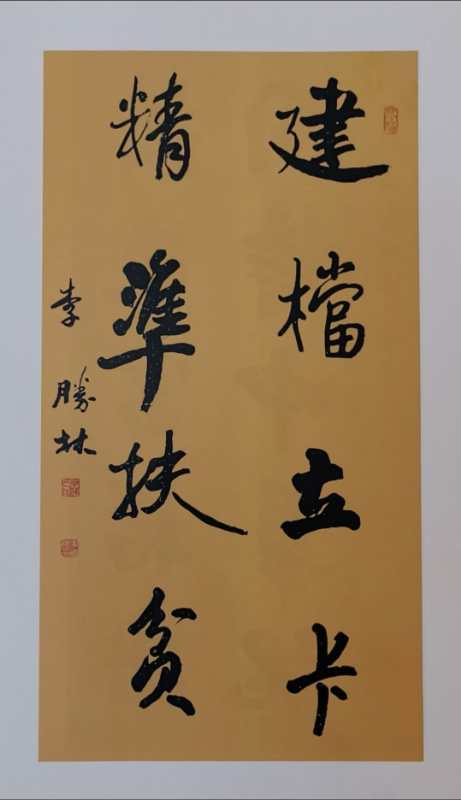 建檔立卡
精準扶貧
李勝林